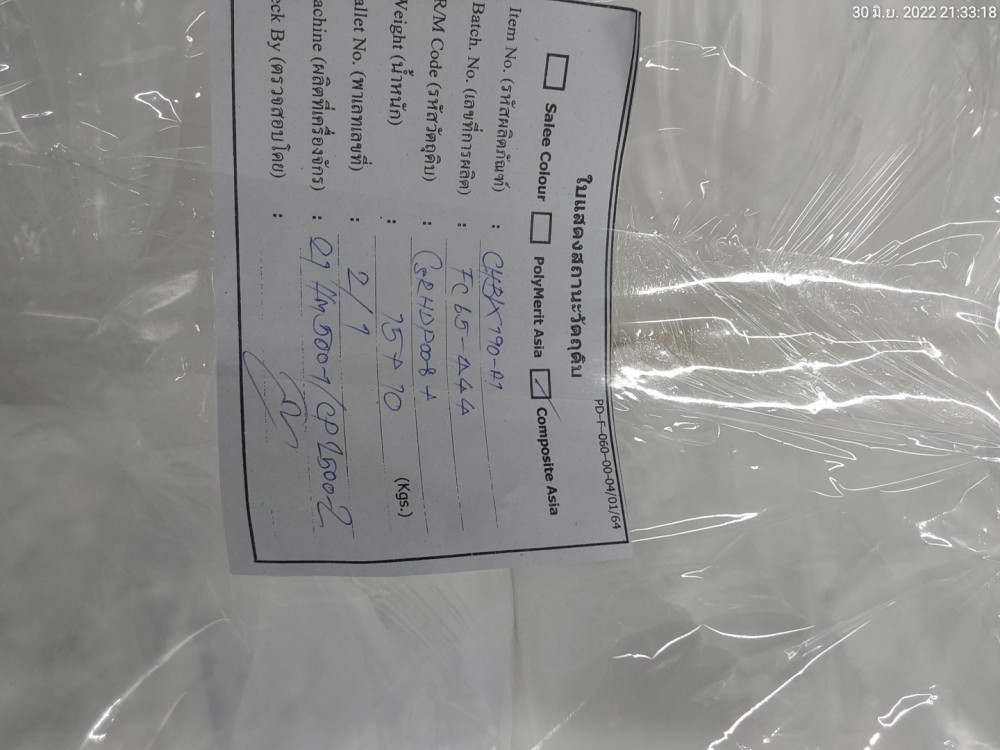 30 มิ.ย. 2022 21:33:18
PD-F-060-00-04/01/64
ใบแสดงสถานะวัตถุดิบ
Salee Colour PolyMerit Asia Composite Asia
Item No. (รหัสผลิตภัณฑ์) :
Batch. No. (เลขที่การผลิต) : FC65-444
R/M Code (รหัสวัตถุดิบ) :
Weight (น้ำหนัก) : (Kgs.)
allet No. (พาเลทเลขที่) : 2/1
achine (ผลิตที่เครื่องจักร) :
eck By (ตรวจสอบโดย) :